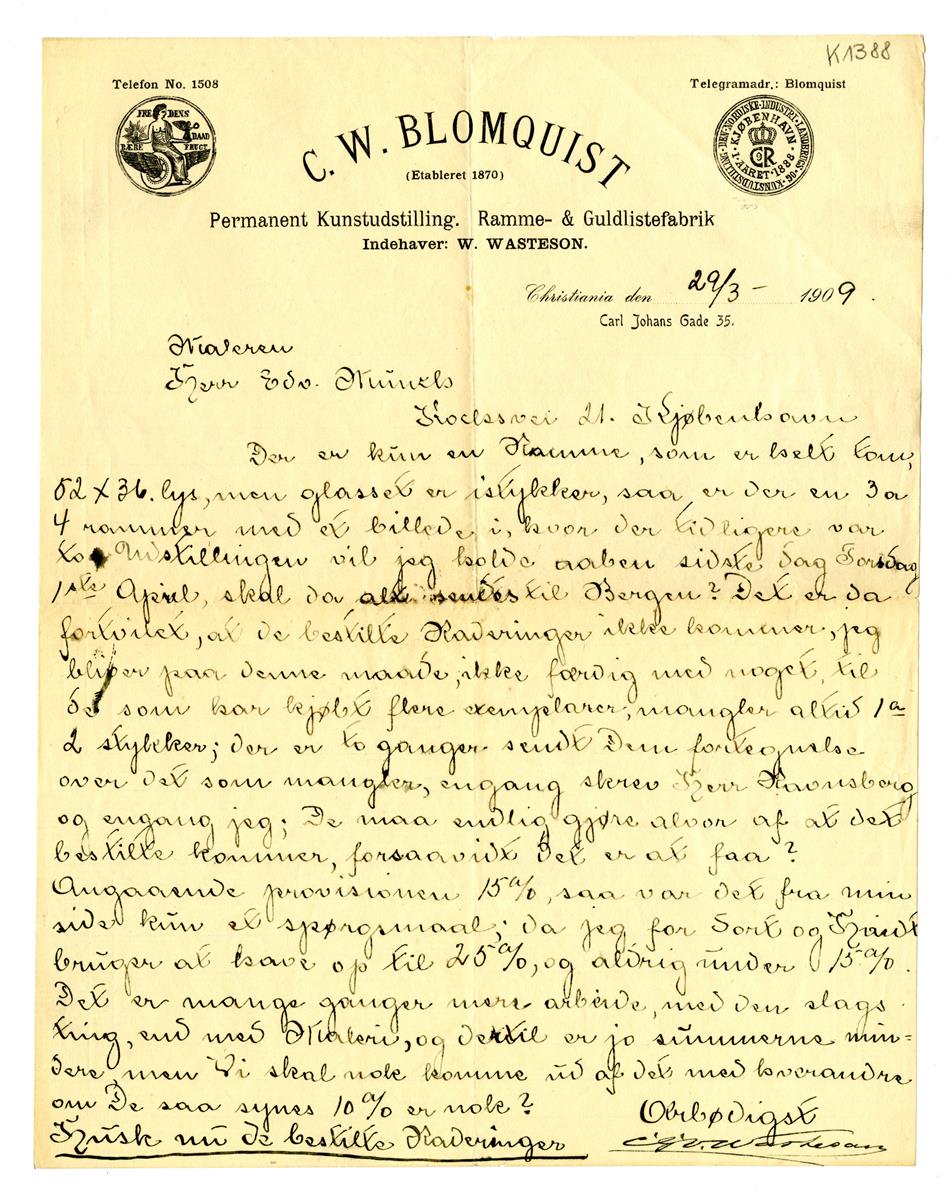 K1388
Telefon No. 1508
Telegramadr.: Blomquist
FREDENS DAAD BÆRE FRUGT
DEN NORDISKE INDUSTRI LANDBRUGS OG KUNSTUDSTILLING
I KJØBENHAVN I AARET 1888
C. W. BLOMQUIST
(Etableret 1870)
Permanent Kunstudstilling. Ramme- & Guldlistefabrik
Indehaver: W. WASTESON.
Christiania den 29/3 - 1909.
Carl Johans Gade 35.
Maleren
Herr Edv. Munch
Kochsvei 21. Kjøbenhavn
Der er kun en Ramme, som er helt tom,
52 X 36. lys, men glasset er istykker, saa er der en 3 a
4 rammer med et billede i, hvor der tidligere var
to. Udstillingen vil jeg holde aaben sidste dag Torsdag
1ste April, skal da alt sendes til Bergen? Det er da
fortvilet, at de bestilte Raderinger ikke kommer, jeg
bliver paa denne maade, ikke færdig med noget, til
de som har kjøbt flere exemplarer, mangler altid 1 a
2 stykker; der er to ganger sendt Dem fortegnelse
over det som mangler, engang skrev Herr Ravnsberg
og engang jeg; De maa endlig gjøre alvor af at det
bestilte kommer, forsaavidt det er at faa?
Angaaende provisionen 15%, saa var det fra min
side kun et spørgsmaal; da jeg for Sort og Hvidt
bruger at have op til 25%, og aldrig under 15%.
Det er mange ganger mere arbeide, med den slags
ting, end med Maleri, og dertil er jo summerne min=
dere, men Vi skal nok komme ud af det med hverandre
om De saa synes 10% er nok?
Ærbødigst
Husk nu de bestilte Raderinger
Wasteson